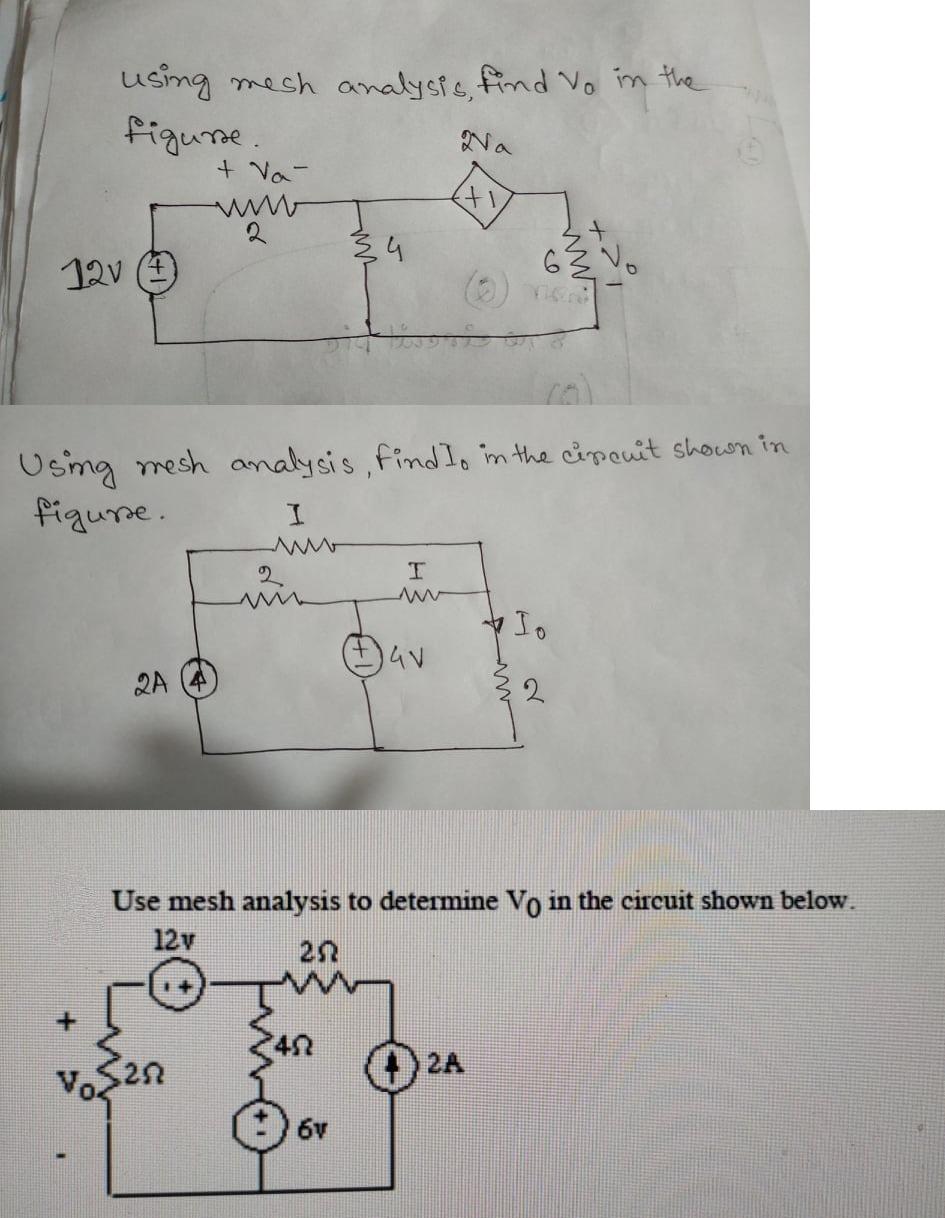 using mesh analysis, find Vo in the
figure.
2Va
+ Va -
+ -
2
4
12V
+
-
6
+
Vo
-
Using mesh analysis, find Io in the circuit shown in
figure.
I
2
I
Io
+
-
4V
2A
2
Use mesh analysis to determine V0 in the circuit shown below.
12v
2Ω
- +
+
4Ω
Vo
2Ω
2A
+
-
6v
-